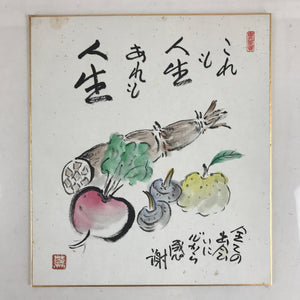 これも
人生
あれも
人生
全ての
出会いに
心から
感
謝